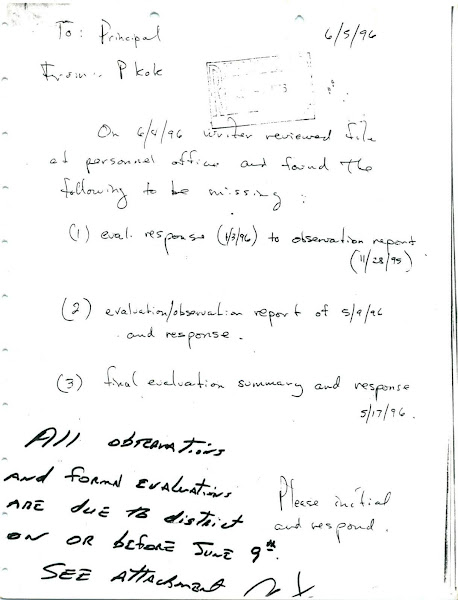 To: Principal 6/5/96
From: P kok
On 6/4/96 writer reviewed file
at personnel office and found the
following to be missing:
(1) eval. response (1/3/96) to observation report
(11/28/95)
(2) evaluation/observation report of 5/9/96
and response.
(3) final evaluation summary and response
5/17/96.
All observations
and formal evaluations
are due to district
on or before June 9th.
See attachment
Please initial
and respond.